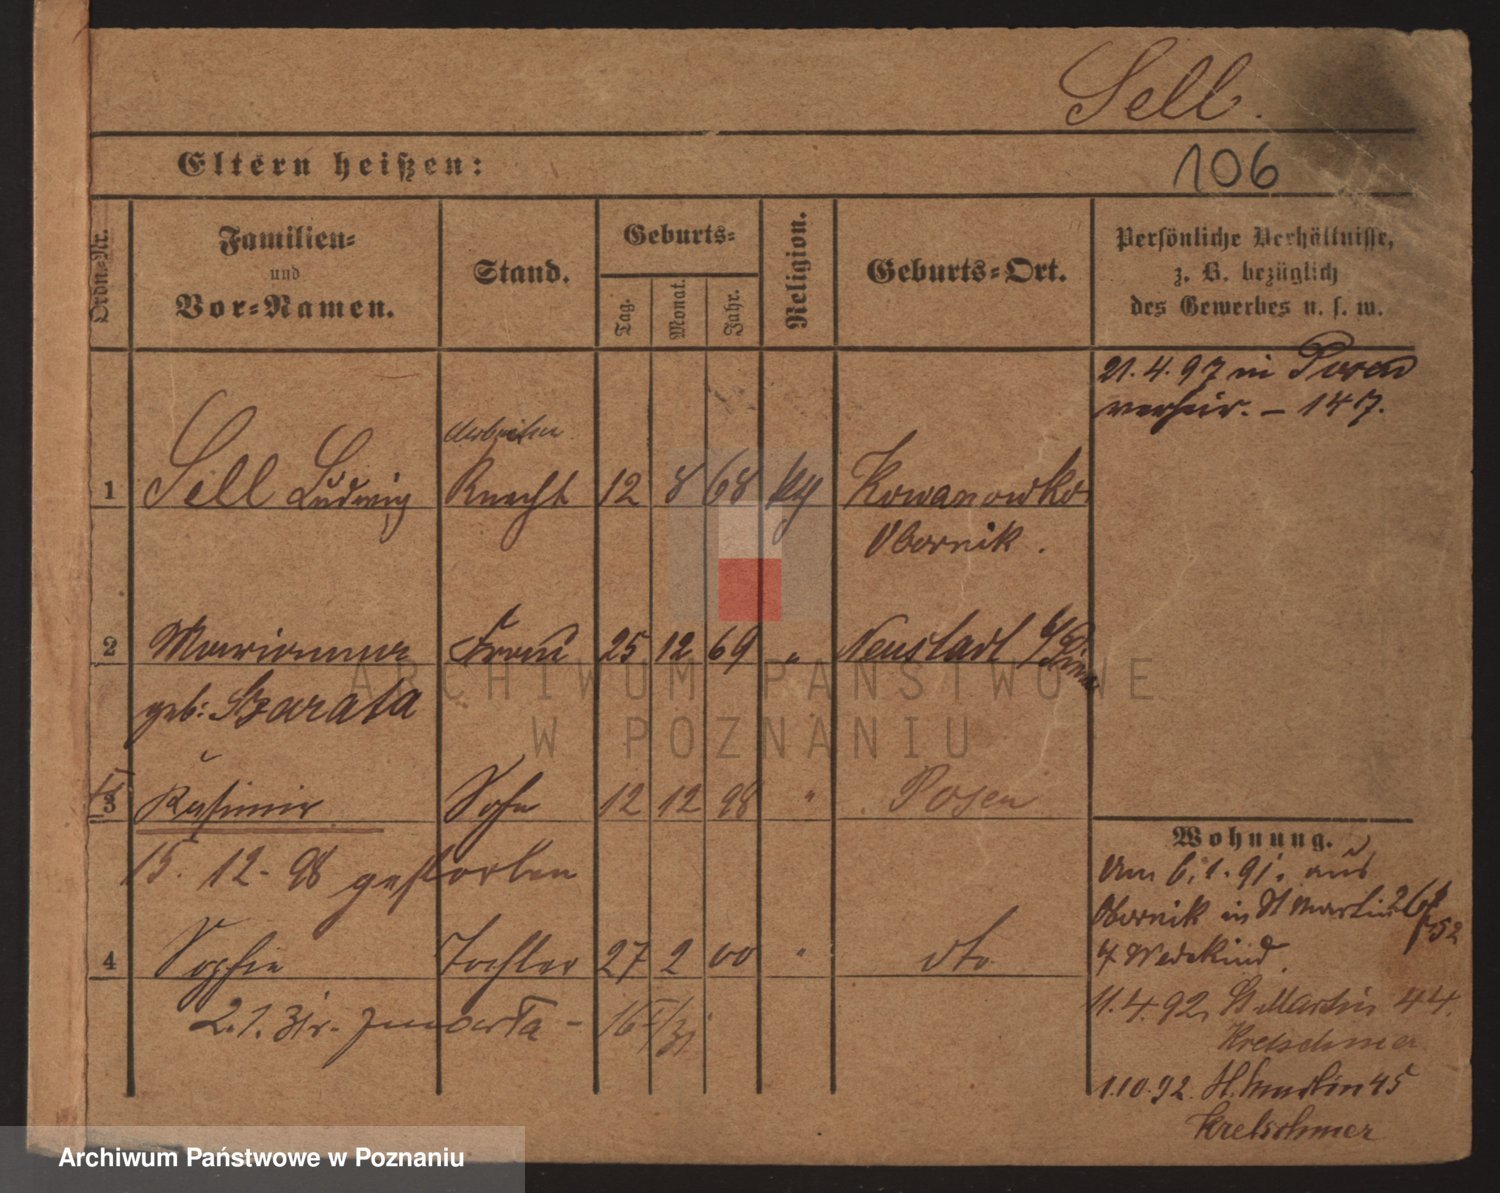 Sell.
106
Eltern heißen:
Ordn.-Nr.
Familien-
und
Vor-Namen.
Stand.
Geburts-
Tag.
Monat.
Jahr.
Religion.
Geburts-Ort.
Persönliche Verhältnisse,
z. B. bezüglich
des Gewerbes u. s. w.
21. 4. 97 in Posen
verheir. – 147.
Arbeiter
1 Sell Ludwig Knecht 12 8 68 Kowanowko
Obornik.
2 Marianna Frau 25 12 69 " Neustadt b/Pinne
geb: Szarata
3 Kasimir Sohn 12 12 98 " Posen
15. 12. 98 gestorben
4 Sophie Tochter 27 2 00 " dto
2. 1.
Wohnung.
Am 6. 1. 91. aus
Obornik in St Martin
Wedekind.
11. 4. 92. St Martin 44.
Kretschmer
1.10.92. St. Martin 45
Kretschmer
ARCHIWUM PAŃSTWOWE
W POZNANIU
Archiwum Państwowe w Poznaniu